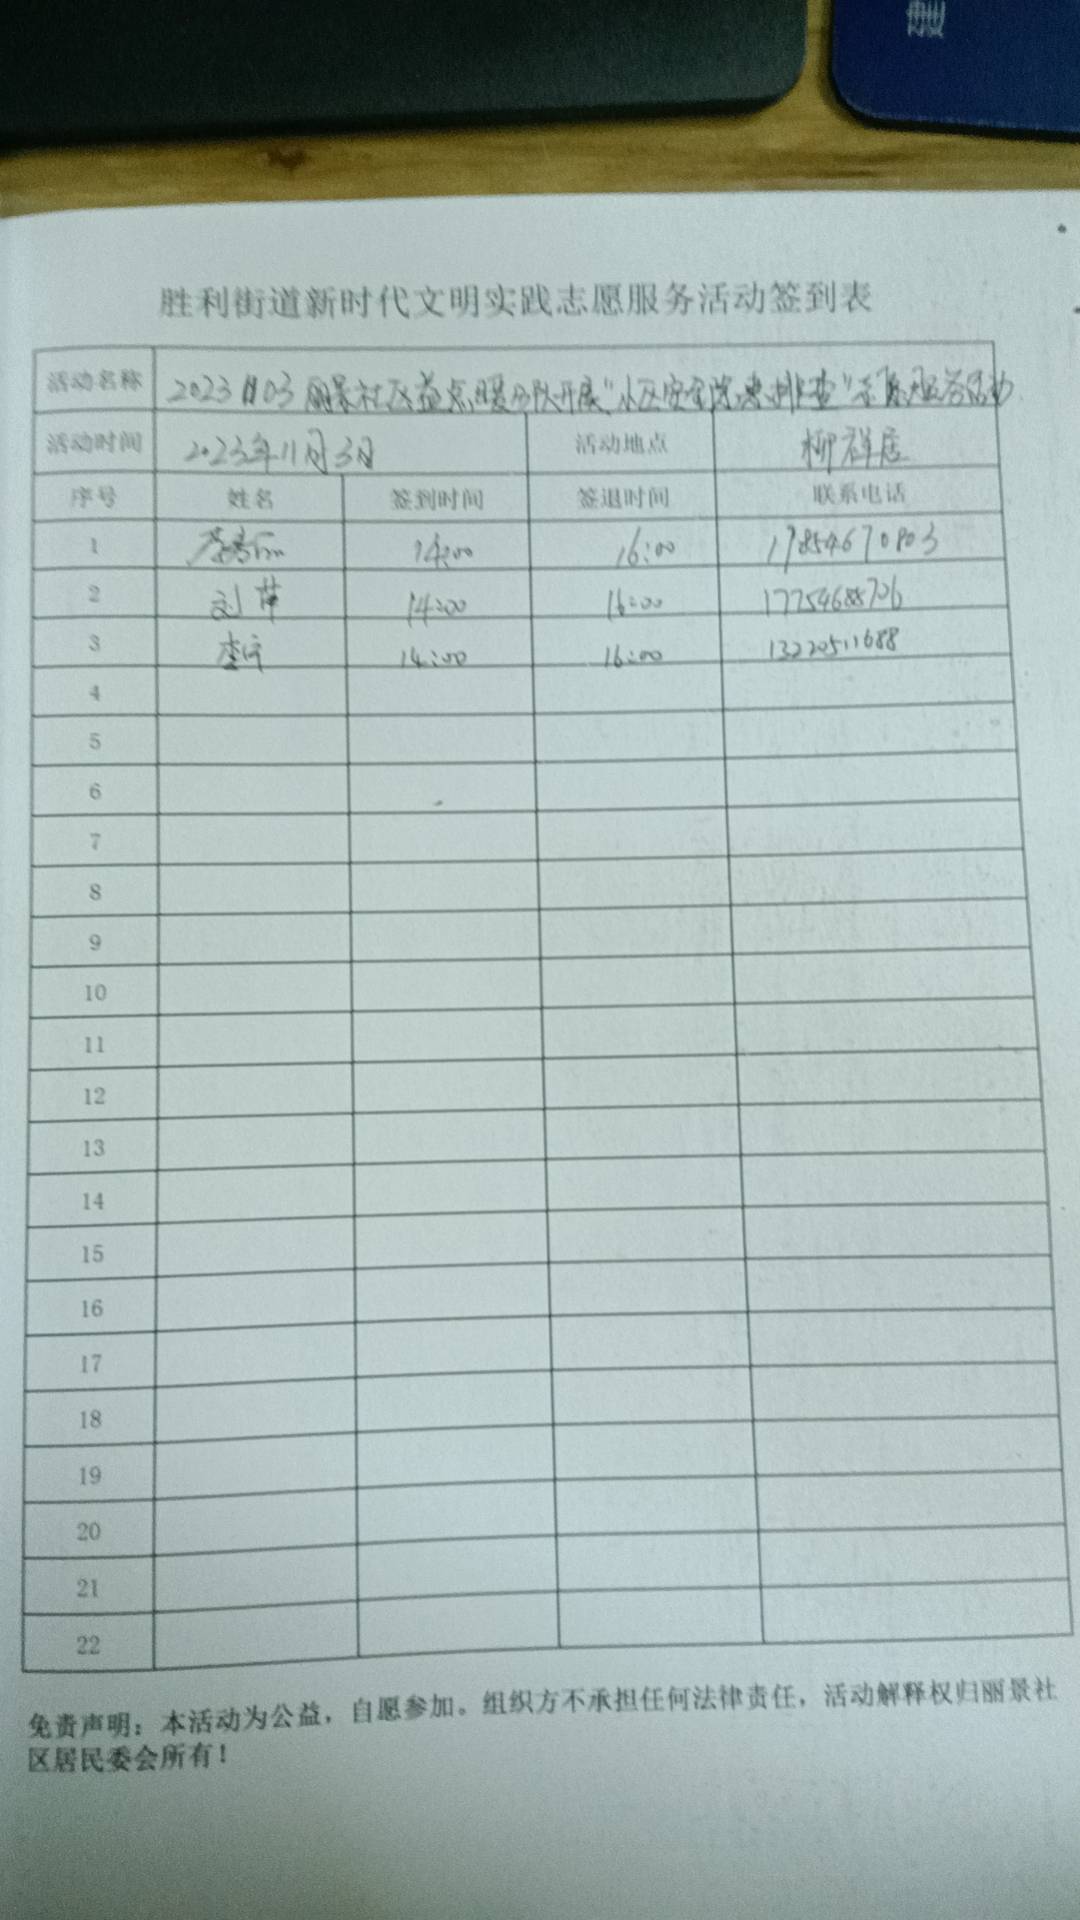 胜利街道新时代文明实践志愿服务活动签到表
活动名称 20231103丽景社区益点暖分队开展“小区安全隐患排查”志愿服务活动
活动时间 2023年11月3日 活动地点 柳祥居
序号 姓名 签到时间 签退时间 联系电话
1 14:00 16:00 17854670803
2 刘萍 14:00 16:00 17754688706
3 14:00 16:00 13220511688
4
5
6
7
8
9
10
11
12
13
14
15
16
17
18
19
20
21
22
免责声明：本活动为公益，自愿参加。组织方不承担任何法律责任，活动解释权归丽景社
区居民委会所有！